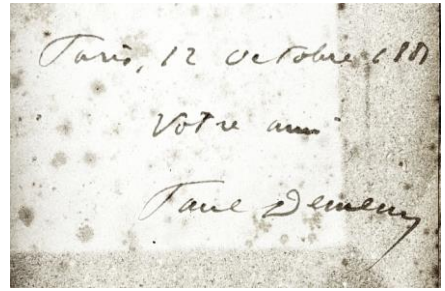 Paris, 12 Octobre
Votre ami
Paul Demeny